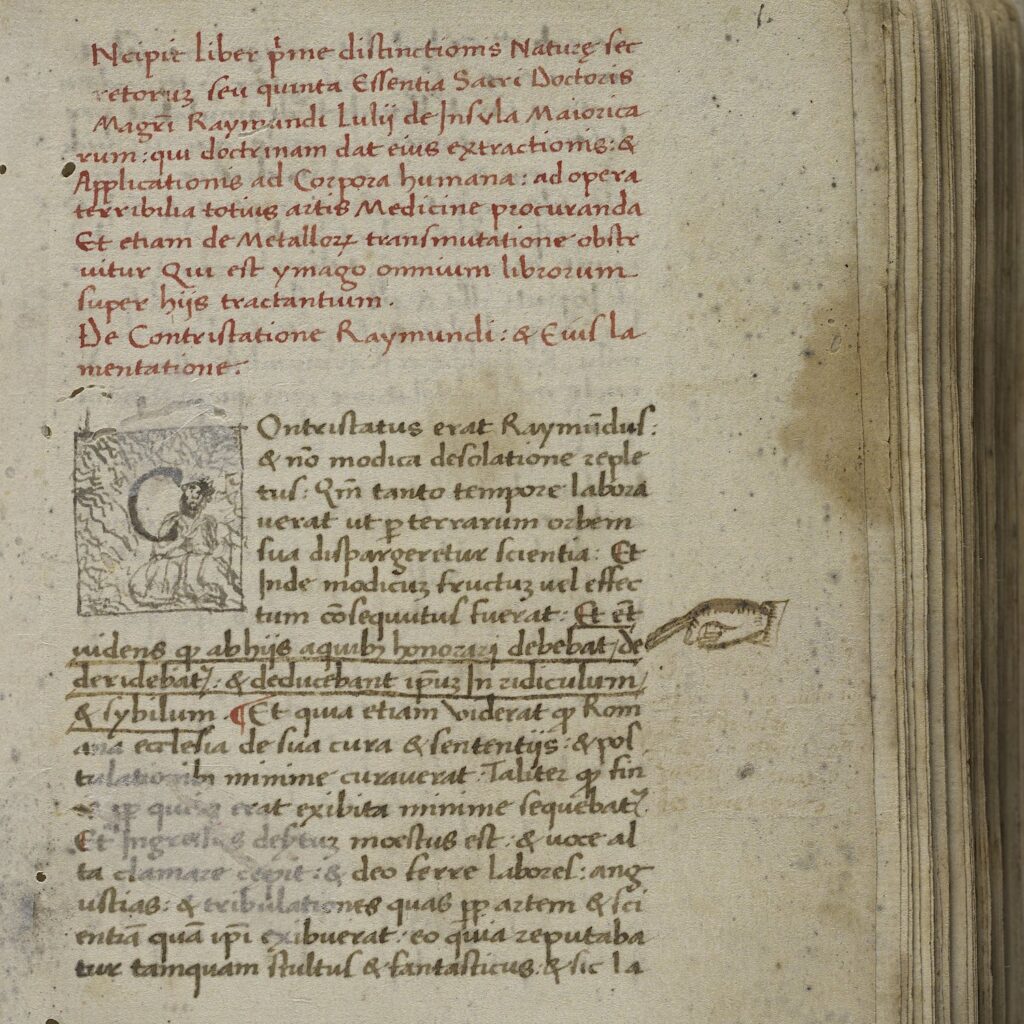 1.
Ncipit liber p̄me distinctionis Naturę sec
retoruꝫ seu quinta Essentia Sacri Doctoris
Magr̄i Raymundi Lulij de Insula Maiorica
rum: qui doctrinam dat eius extractionis: &
Applicationis ad Corpora humana: ad opera
terribilia totius artis Medicine procuranda
Et etiam de Metalloꝝ transmutatione obstr
uitur Qui est ymago omnium librorum
super hijs tractantium.
De Contristatione Raymundi: & Eius la
mentatione:
COntristatus erat Raymūdus:
& nō modica desolatione reple
tus: Qm̄ tanto tempore labora
uerat ut ꝑ terrarum orbem
sua dispargeretur scientia: Et
Inde modicuꝫ fructuꝫ uel effec
tum cōsequutus fuerat: Et et̄
uidens ꝙ ab hijs aquibꝫ honorari debebat, de
deridebat᷑: & deducebant ip̄uꝫ In ridiculum,
& sybilum. ¶ Et quia etiam viderat ꝙ Rom
ana ecclesia de sua cura & sententijs: & pos
tulationibꝫ minime curauerat: Taliter ꝙ fin
erat exibita minime sequebat᷑.
Et Ingressus moestus est: & uoce al
ta clamare cepit: & deo ferre labores: ang
ustias: & tribulationes quas ꝓp artem & sci
entiā quā ip̄i exibuerat: eo quia reputaba
tur tamquam stultus & fantasticus: & sic la